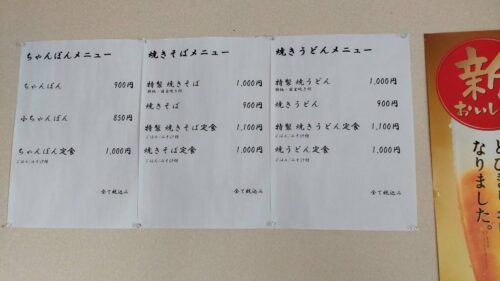 ちゃんぽんメニュー
ちゃんぽん 900円
小ちゃんぽん 850円
ちゃんぽん定食 1,000円
ごはん・みそ汁付
全て税込み
焼きそばメニュー
特製 焼きそば 1,000円
焼きそば 900円
特製 焼きそば定食 1,100円
ごはん・みそ汁付
焼きそば定食 1,000円
ごはん・みそ汁付
全て税込み
焼きうどんメニュー
特製 焼うどん 1,000円
焼きうどん 900円
特製 焼きうどん定食 1,100円
ごはん・みそ汁付
焼うどん定食 1,000円
ごはん・みそ汁付
全て税込み
新
おいし
なりました。